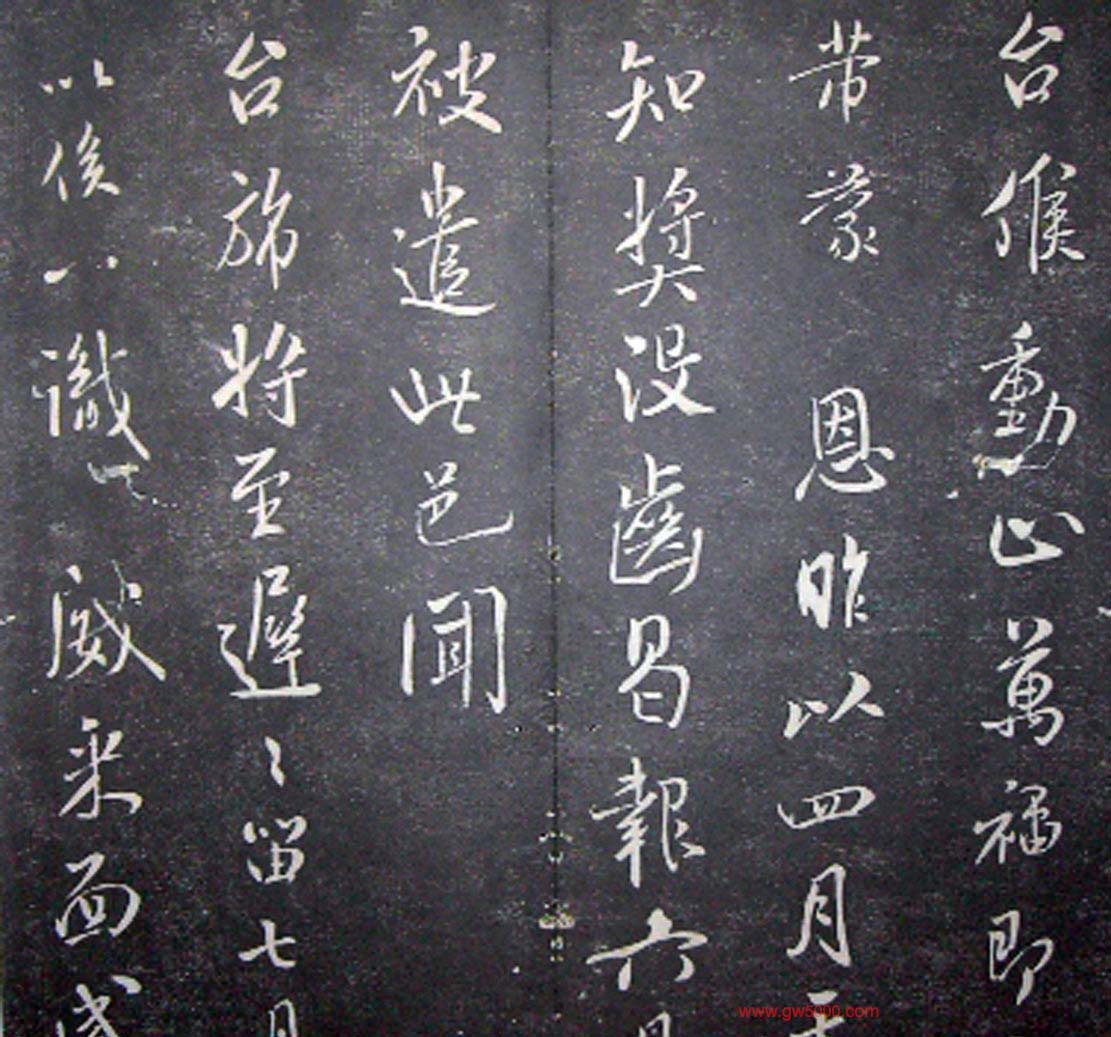 台候動止萬福即
蒙恩昨以四月
知獎沒齒曷報六
被遣此邑聞
台旆將至遲〻留七月
以俟一識 威采面
www.gw5000.com